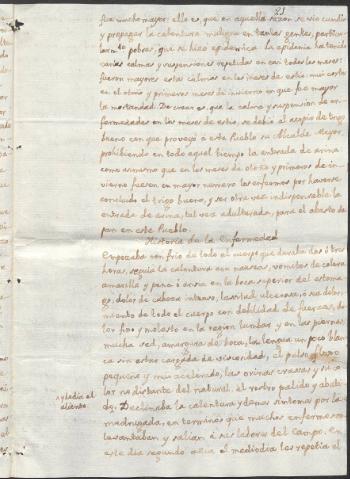 21
fue mucho mayor: ello es, que en aquella sazon se vio cundir
y propagar la calentura maligna en tantas gentes, particu
larm.te pobres, que se hizo epidemica. La epidemia ha tenido
varias calmas y suspensiones repetidas en casi todos los meses:
fueron mayores estas calmas en los meses de estio, mui cortas
en el otoño y primeros meses de invierno en que fue mayor
la mortandad. De creer es, que la calma y suspension de en-
fermedades en los meses de estio, se debió al acopio de trigo
bueno con que proveyó a este Pueblo su Alcalde Mayor,
prohibiendo en todo aquel tiempo la entrada de arina
como asimismo que en los meses de otoño y primeros de in-
vierno fuesen en mayor número los enfermos por haverse
concluido el trigo bueno, y ser otra vez indispensable la
entrada de arina, tal vez adulterada, para el abasto de
pan en este Pueblo.
Historia de la Enfermedad
Empezaba con frio de todo el cuerpo que duraba dos ó tres
horas, seguia la calentura con nauseas, vomitos de colera
amarilla y pena ó ansia en la boca superior del estoma-
go, dolor de cabeza intenso, lasitud ulcerosa, ó sea dolor,
miento de todo el cuerpo con debilidad de fuerzas, do
lor fixo y molesto en la region lumbar y en las piernas,
mucha sed, amargura de boca, la lengua un poco blan
ca sin estar cargada de viscosidad, el pulso
pequeño y mui acelerado, las orinas crasas y su co
lor no distante del natural, el rostro palido y abati-
do. Declinaba la calentura y demas sintomas por la
madrugada, en terminos que muchos enfermos se
levantaban y salian á sus labores del campo. En
este dia segundo acia el mediodia les repetia el
aliento